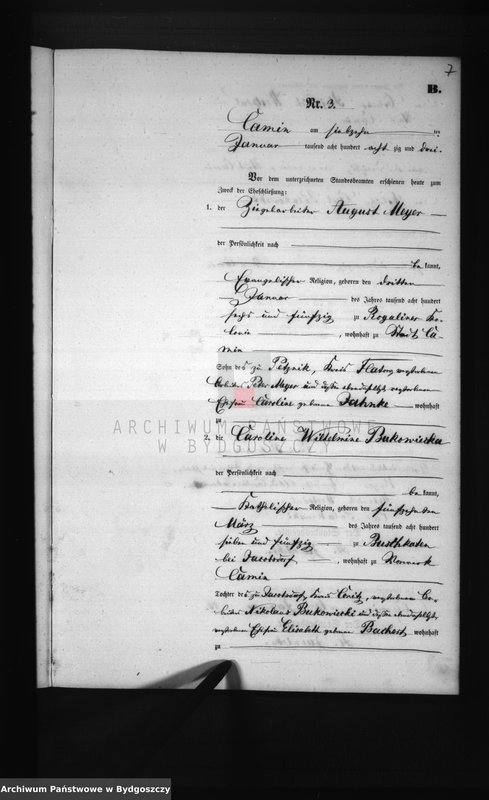 7
B.
Nr. 3.
Camin am siebzehn ten
Januar tausend acht hundert acht zig und drei.
Vor dem unterzeichneten Standesbeamten erschienen heute zum
Zweck der Eheschließung:
1. der Ziegelarbeiter August Meyer
der Persönlichkeit nach
be kannt,
Evangelischer Religion, geboren den dritten
Januar des Jahres tausend acht hundert
sechs und fünfzig zu Rogaliner Ko-
lonie, wohnhaft zu Stadt Ca-
min
Sohn des zu Petznik, Kreis Flatow verstorbenen
Arbeiters Peter Meyer und dessen ebendaselbst verstorbenen
Ehefrau Caroline geborene Jahnke wohnhaft
zu
ARCHIWUM PAŃSTWOWE
W BYDGOSZCZY
2. die Caroline Wilhelmine Bukowiecka
der Persönlichkeit nach
be kannt,
Katholischer Religion, geboren den fünfzehnten
März des Jahres tausend acht hundert
sieben und fünfzig zu Buschkaten
bei Jacobsdorf, wohnhaft zu Vorwerk
Camin
Tochter des zu Jacobsdorf, Kreis Conitz, verstorbenen Ar-
beiters Nikolaus Bukowiecki und dessen ebendaselbst
verstorbenen Ehefrau Elisabeth geborene wohnhaft
zu
Archiwum Państwowe w Bydgoszczy